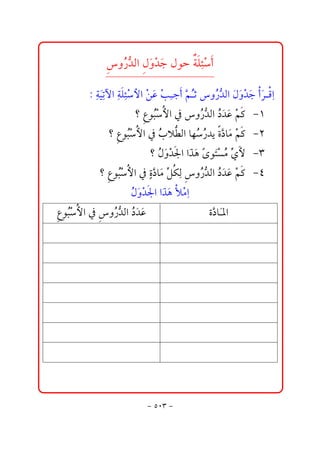 أَسْئِلَةٌ حول جَدْوَلِ الدُّرُوسِ
اِقْـرَأْ جَدْوَلَ الدُّرُوس ثُـمَّ أَجِـبْ عَنْ الآسْئِلَةِ الآتِيَةِ :
١- كَمْ عَدَدُ الدُّرُوس في الأُسْبُوعِ ؟
٢- كَمْ مَادَّةً يدرُسُها الطُّلابُ في الأُسْبُوعِ ؟
٣- لأَيِّ مُسْتَوىً هَذَا الجَدْوَلُ ؟
٤- كَمْ عَدَدُ الدُّرُوسِ لِكُلِّ مَادَّةٍ في الأُسْبُوعِ ؟
اِمْلأْ هَذَا الجَدْوَلُ
المَـادَّة عَدَدُ الدُّرُوسِ في الأُسْبُوعِ
- ٥٠٣ -